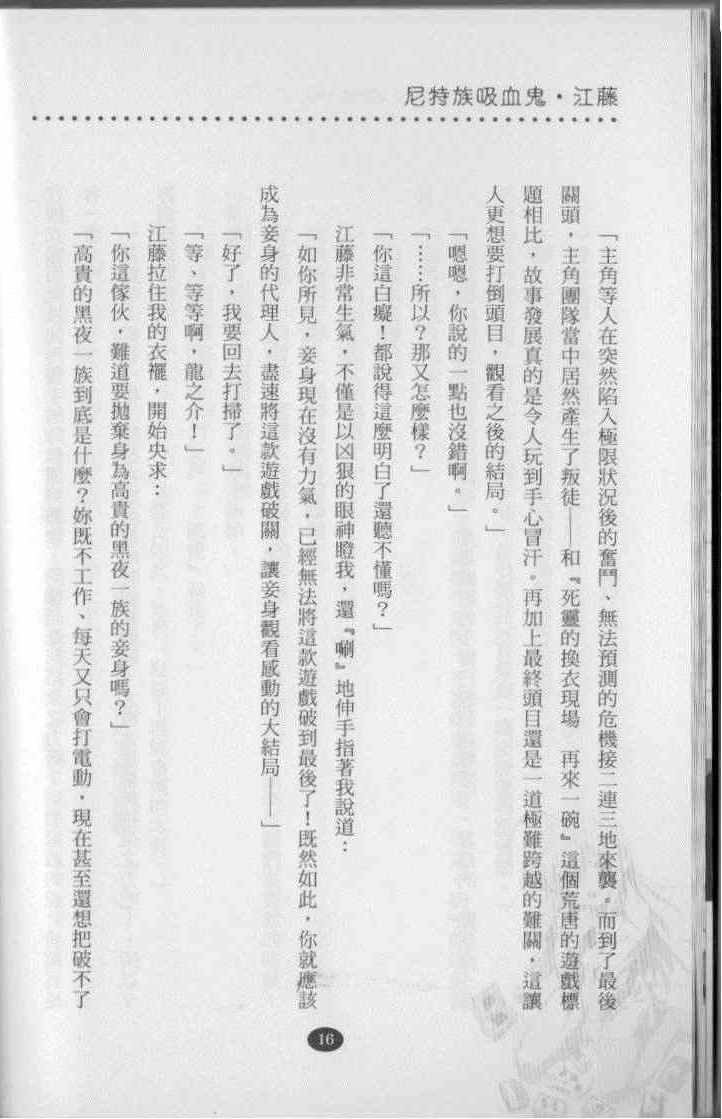 尼特族吸血鬼・江藤
「主角等人在突然陷入極限狀況後的奮鬥、無法預測的危機接二連三地來襲。而到了最後
關頭，主角團隊當中居然產生了叛徒——和『死靈的換衣現場　再來一碗』這個荒唐的遊戲標
題相比，故事發展真的是令人玩到手心冒汗。再加上最終頭目還是一道極難跨越的難關，這讓
人更想要打倒頭目，觀看之後的結局。」
「嗯嗯，你說的一點也沒錯啊。」
「……所以？那又怎麼樣？」
「你這白癡！都說得這麼明白了還聽不懂嗎？」
江藤非常生氣，不僅是以凶狠的眼神瞪我，還『唰』地伸手指著我說道：
「如你所見，妾身現在沒有力氣，已經無法將這款遊戲破到最後了！既然如此，你就應該
成為妾身的代理人，盡速將這款遊戲破關，讓妾身觀看感動的大結局——」
「好了，我要回去打掃了。」
「等、等等啊，龍之介！」
江藤拉住我的衣襬，開始央求：
「你這傢伙，難道要拋棄身為高貴的黑夜一族的妾身嗎？」
「高貴的黑夜一族到底是什麼？妳既不工作、每天又只會打電動，現在甚至還想把破不了
16